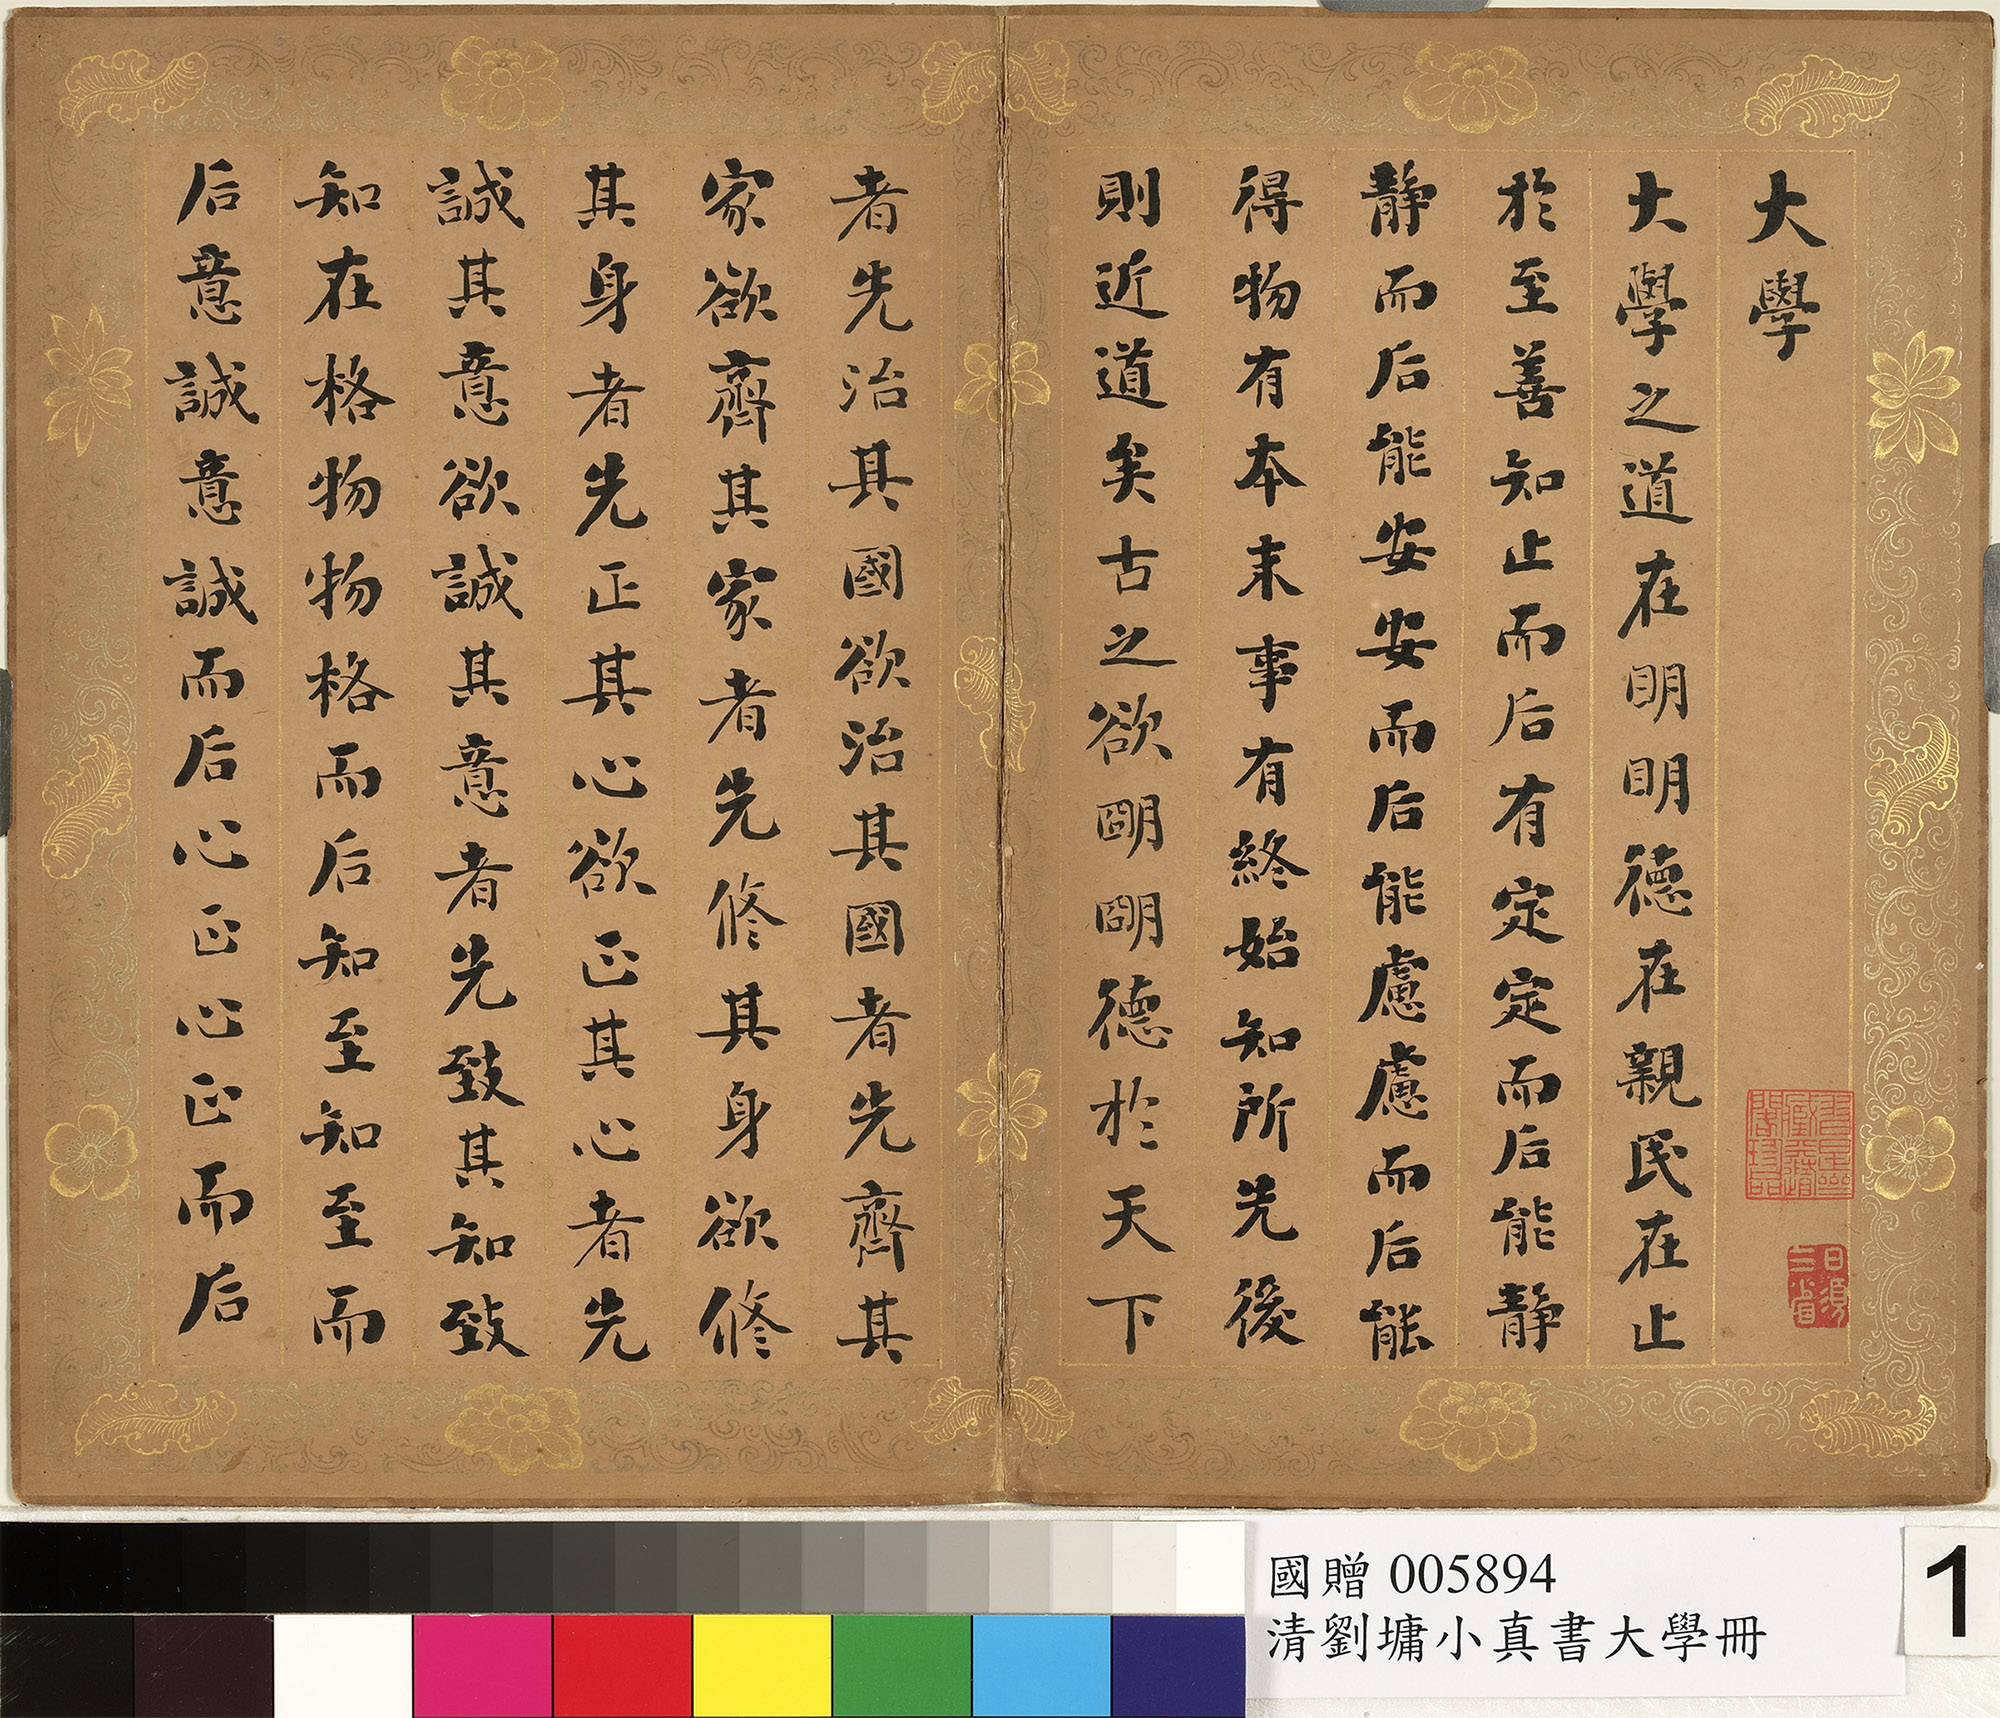 大學
大學之道在眀眀德在親民在止
於至善知止而后有定定而后能静
静而后能安安而后能慮慮而后能
得物有本末事有終始知所先後
則近道矣古之欲明明德於天下
者先治其國欲治其國者先齊其
家欲齊其家者先修其身欲修
其身者先正其心欲正其心者先
誠其意欲誠其意者先致其知致
知在格物物格而后知至知至而
后意誠意誠而后心正心正而后
國贈 005894
清劉墉小真書大學冊
1